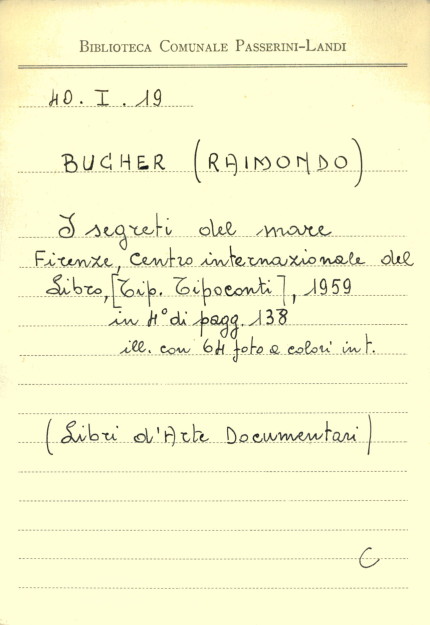 BIBLIOTECA COMUNALE PASSERINI-LANDI
40. I. 19
BUCHER (RAIMONDO)
I segreti del mare
Firenze, Centro internazionale del
Libro, [Tip. Tipoconti], 1959
in 4° di pagg. 138
ill. con 64 foto a colori in t.
(Libri d'Arte Documentari)
C